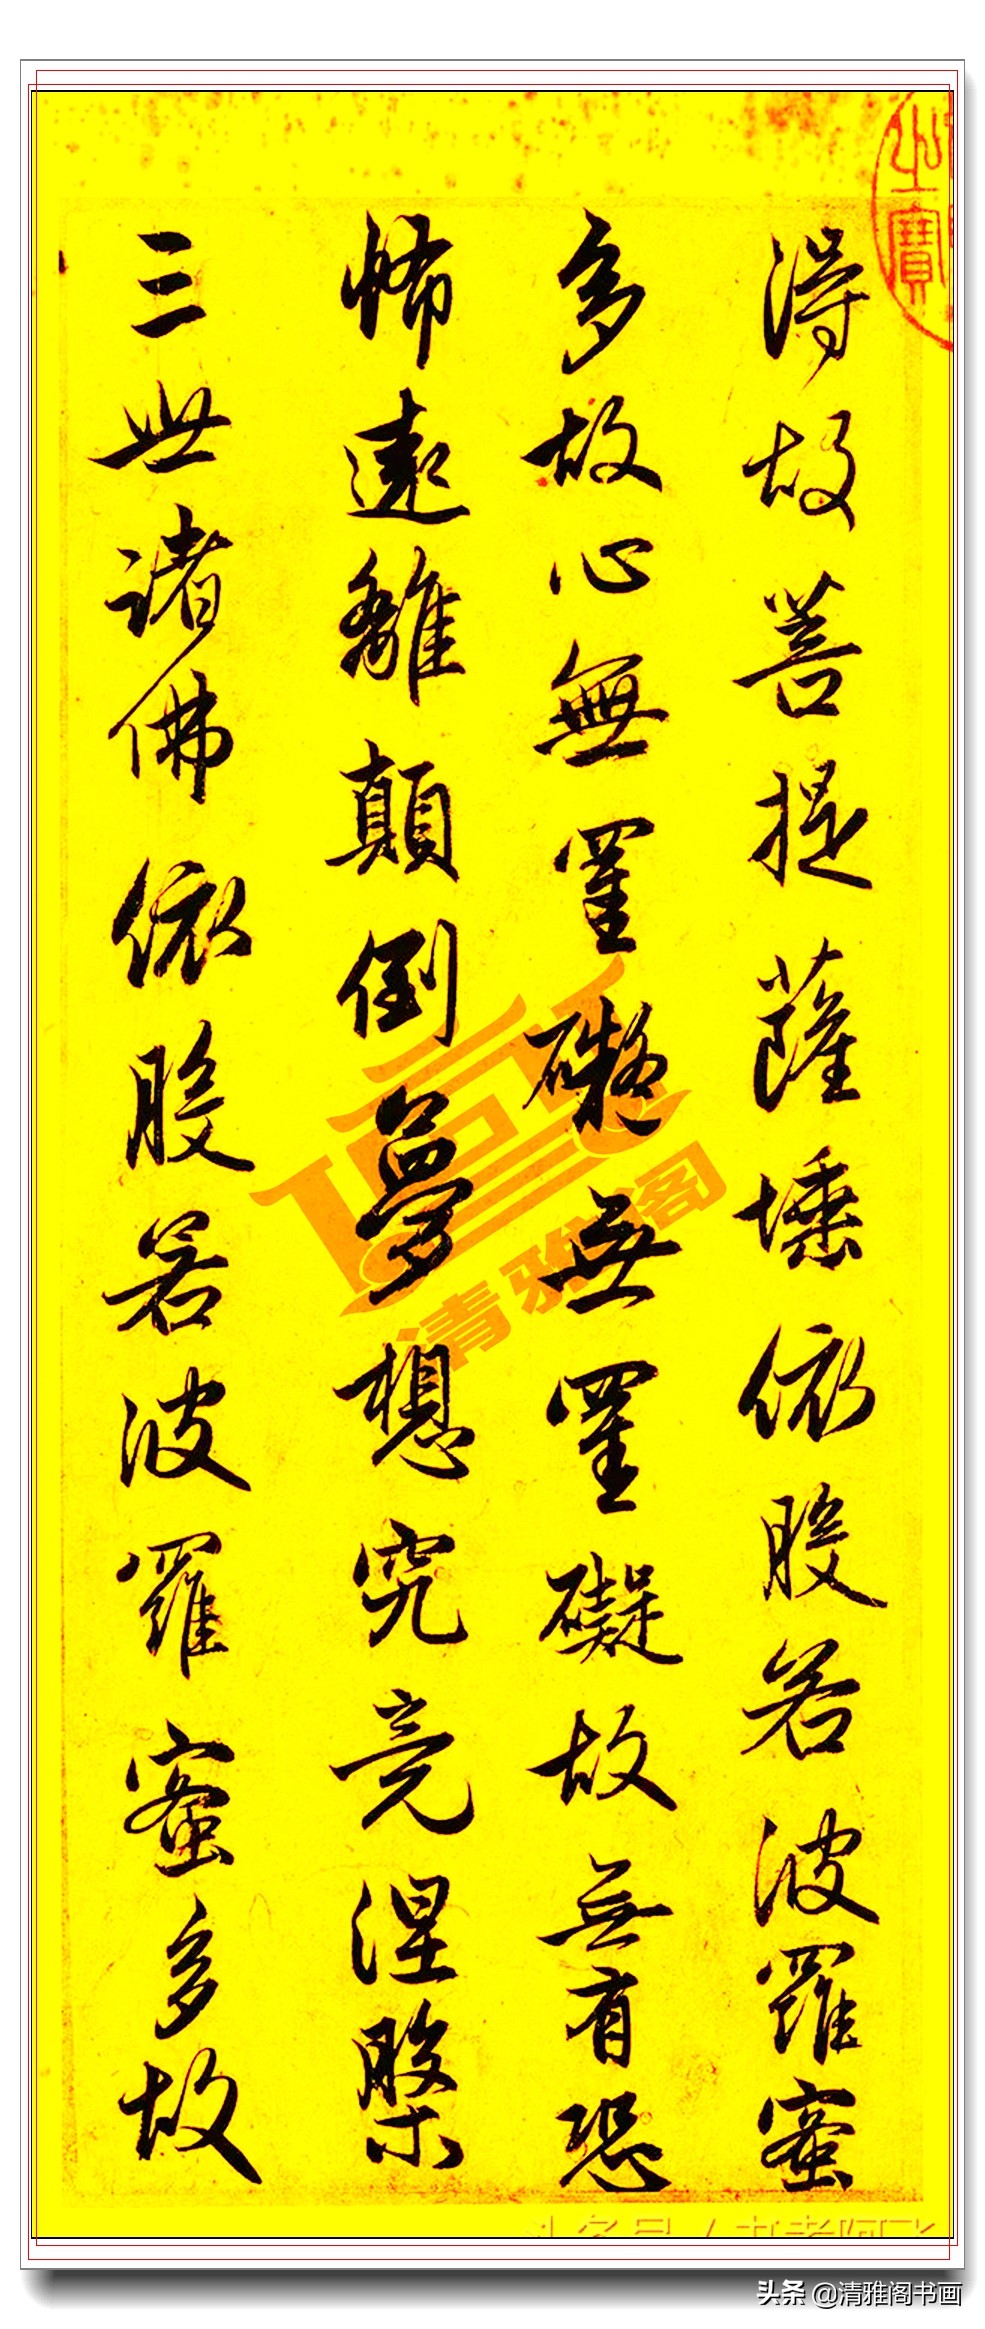 得故菩提薩埵依般若波羅蜜
多故心無罣礙無罣礙故無有恐
怖遠離顛倒夢想究竟涅槃
三世諸佛依般若波羅蜜多故
之寶
清雅阁
头条 @清雅阁书画